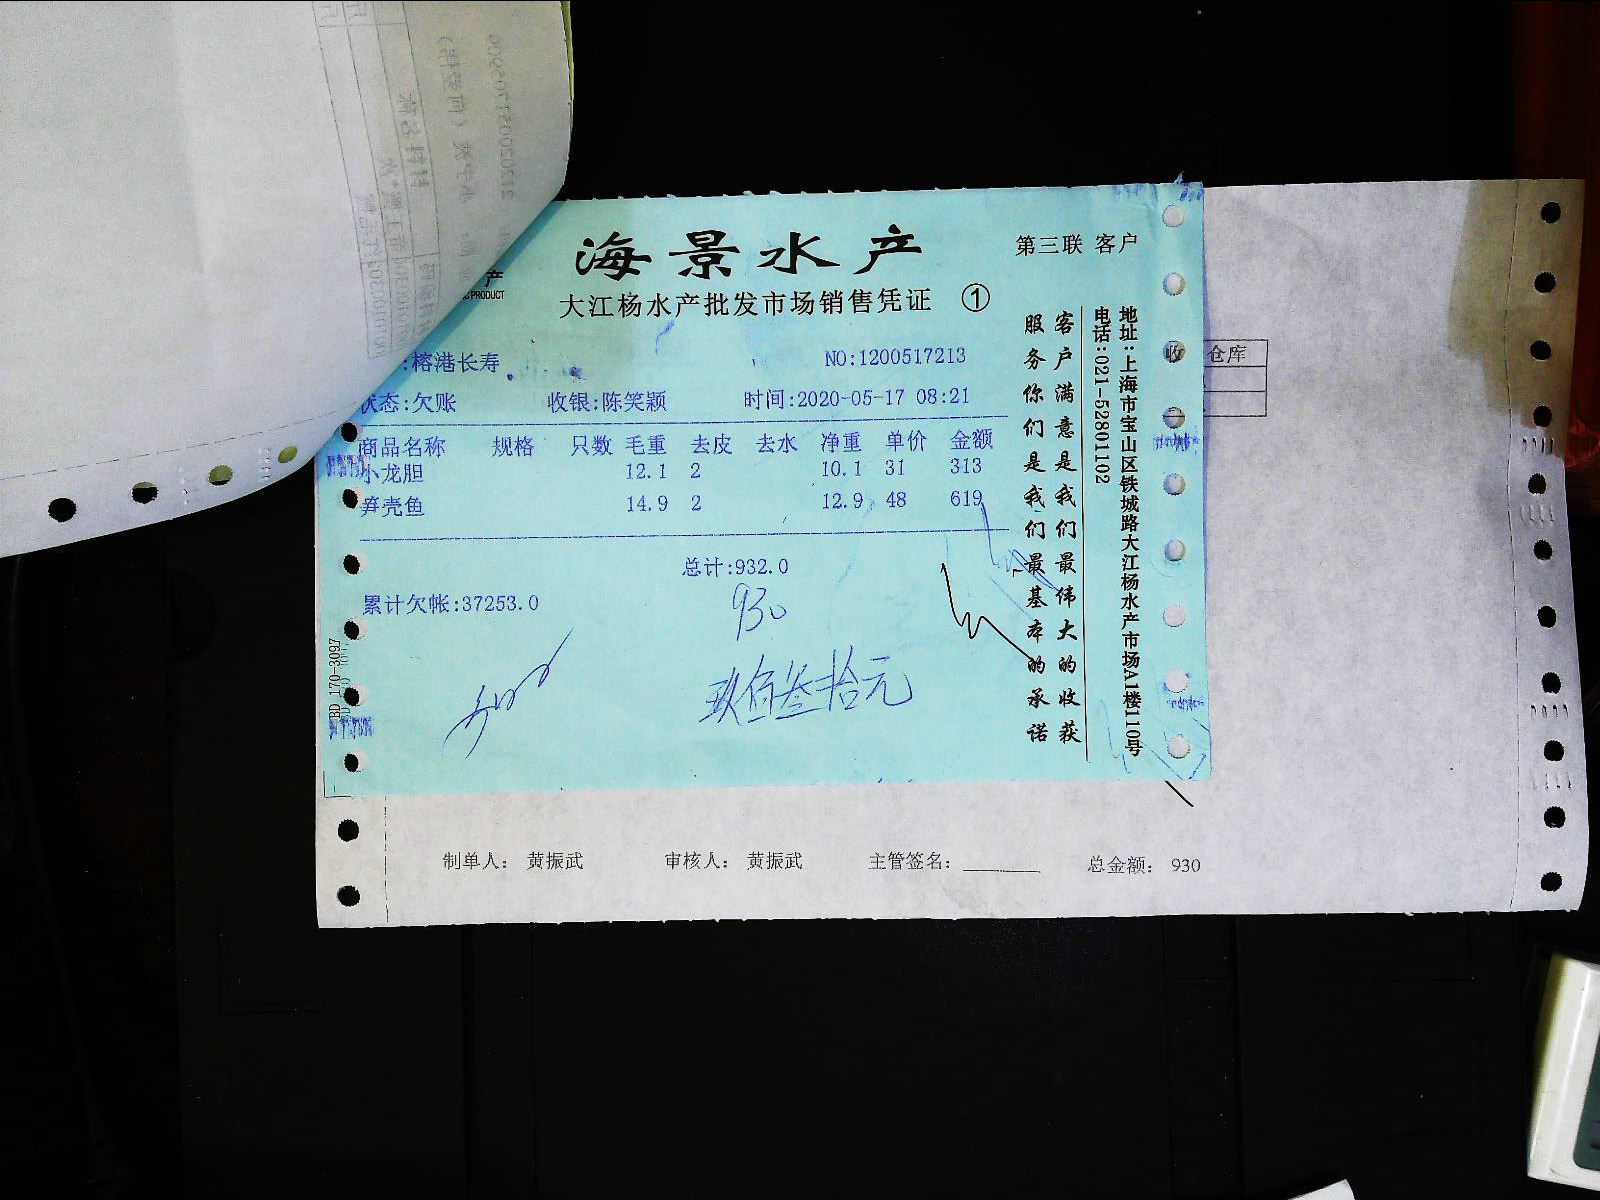 海景水产
第三联 客户
产
PRODUCT
大江杨水产批发市场销售凭证 ①
:榕港长寿
NO:1200517213
状态:欠账 收银:陈笑颖 时间:2020-05-17 08:21
商品名称 规格 只数 毛重 去皮 去水 净重 单价 金额
小龙胆 12.1 2 10.1 31 313
笋壳鱼 14.9 2 12.9 48 619
总计:932.0
累计欠帐:37253.0
930
玖佰叁拾元
客户满意是我们最伟大的收获
服务你们是我们最基本的承诺
地址:上海市宝山区铁城路大江杨水产市场A1楼110号
电话:021-52801102
收 仓库
170-3097
制单人: 黄振武 审核人: 黄振武 主管签名: 总金额: 930